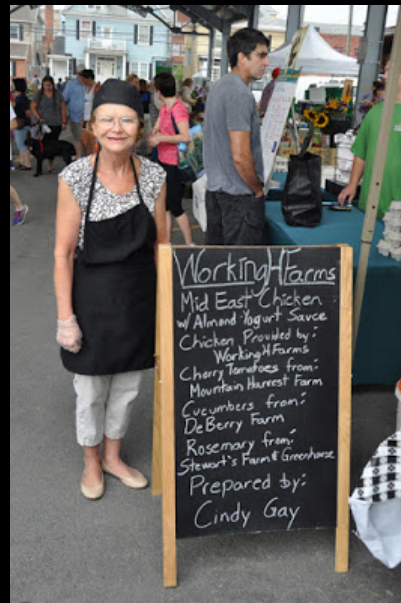 Working H Farms
Mid East Chicken
w/ Almond Yogurt Sauce
Chicken Provided by:
Working H Farms
Cherry Tomatoes from:
Mountain Harvest Farm
Cucumbers from:
DeBerry Farm
Rosemary from:
Stewart's Farm & Greenhouse
Prepared by:
Cindy Gay